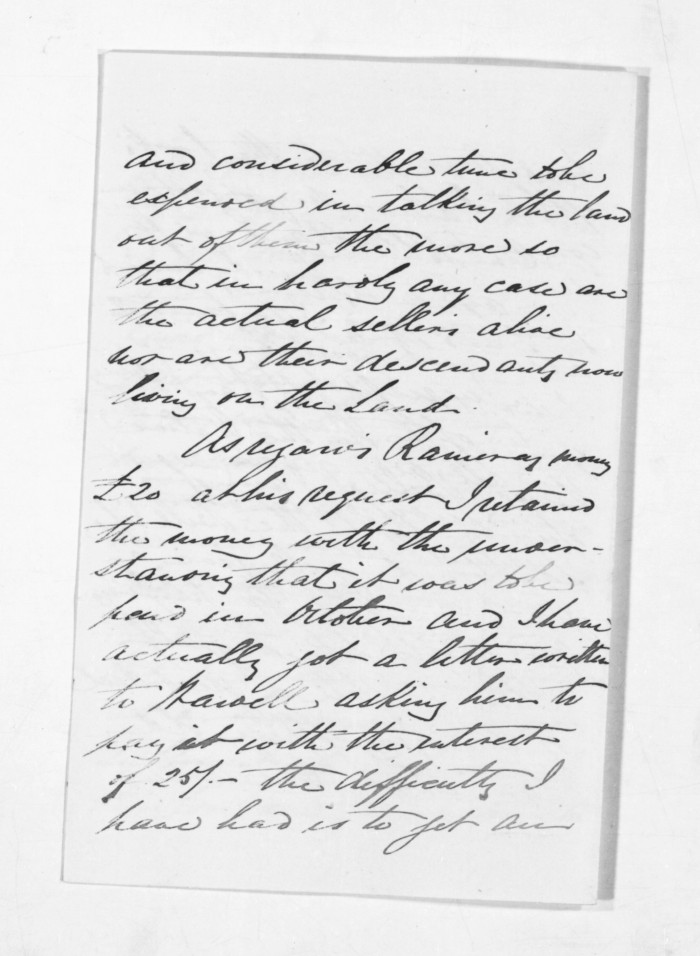 and considerable time to be
expended in talking the land
out of them the more so
that in hardly any case are
the actual sellers alive
nor are their descendants now
living on the Land.
As regards money
£20 at his request I retained
the money with the under-
standing that it was to be
paid in October and I have
actually got a letter written
to asking him to
pay it with the interest
of 25/- the difficulty I
have had is to get an